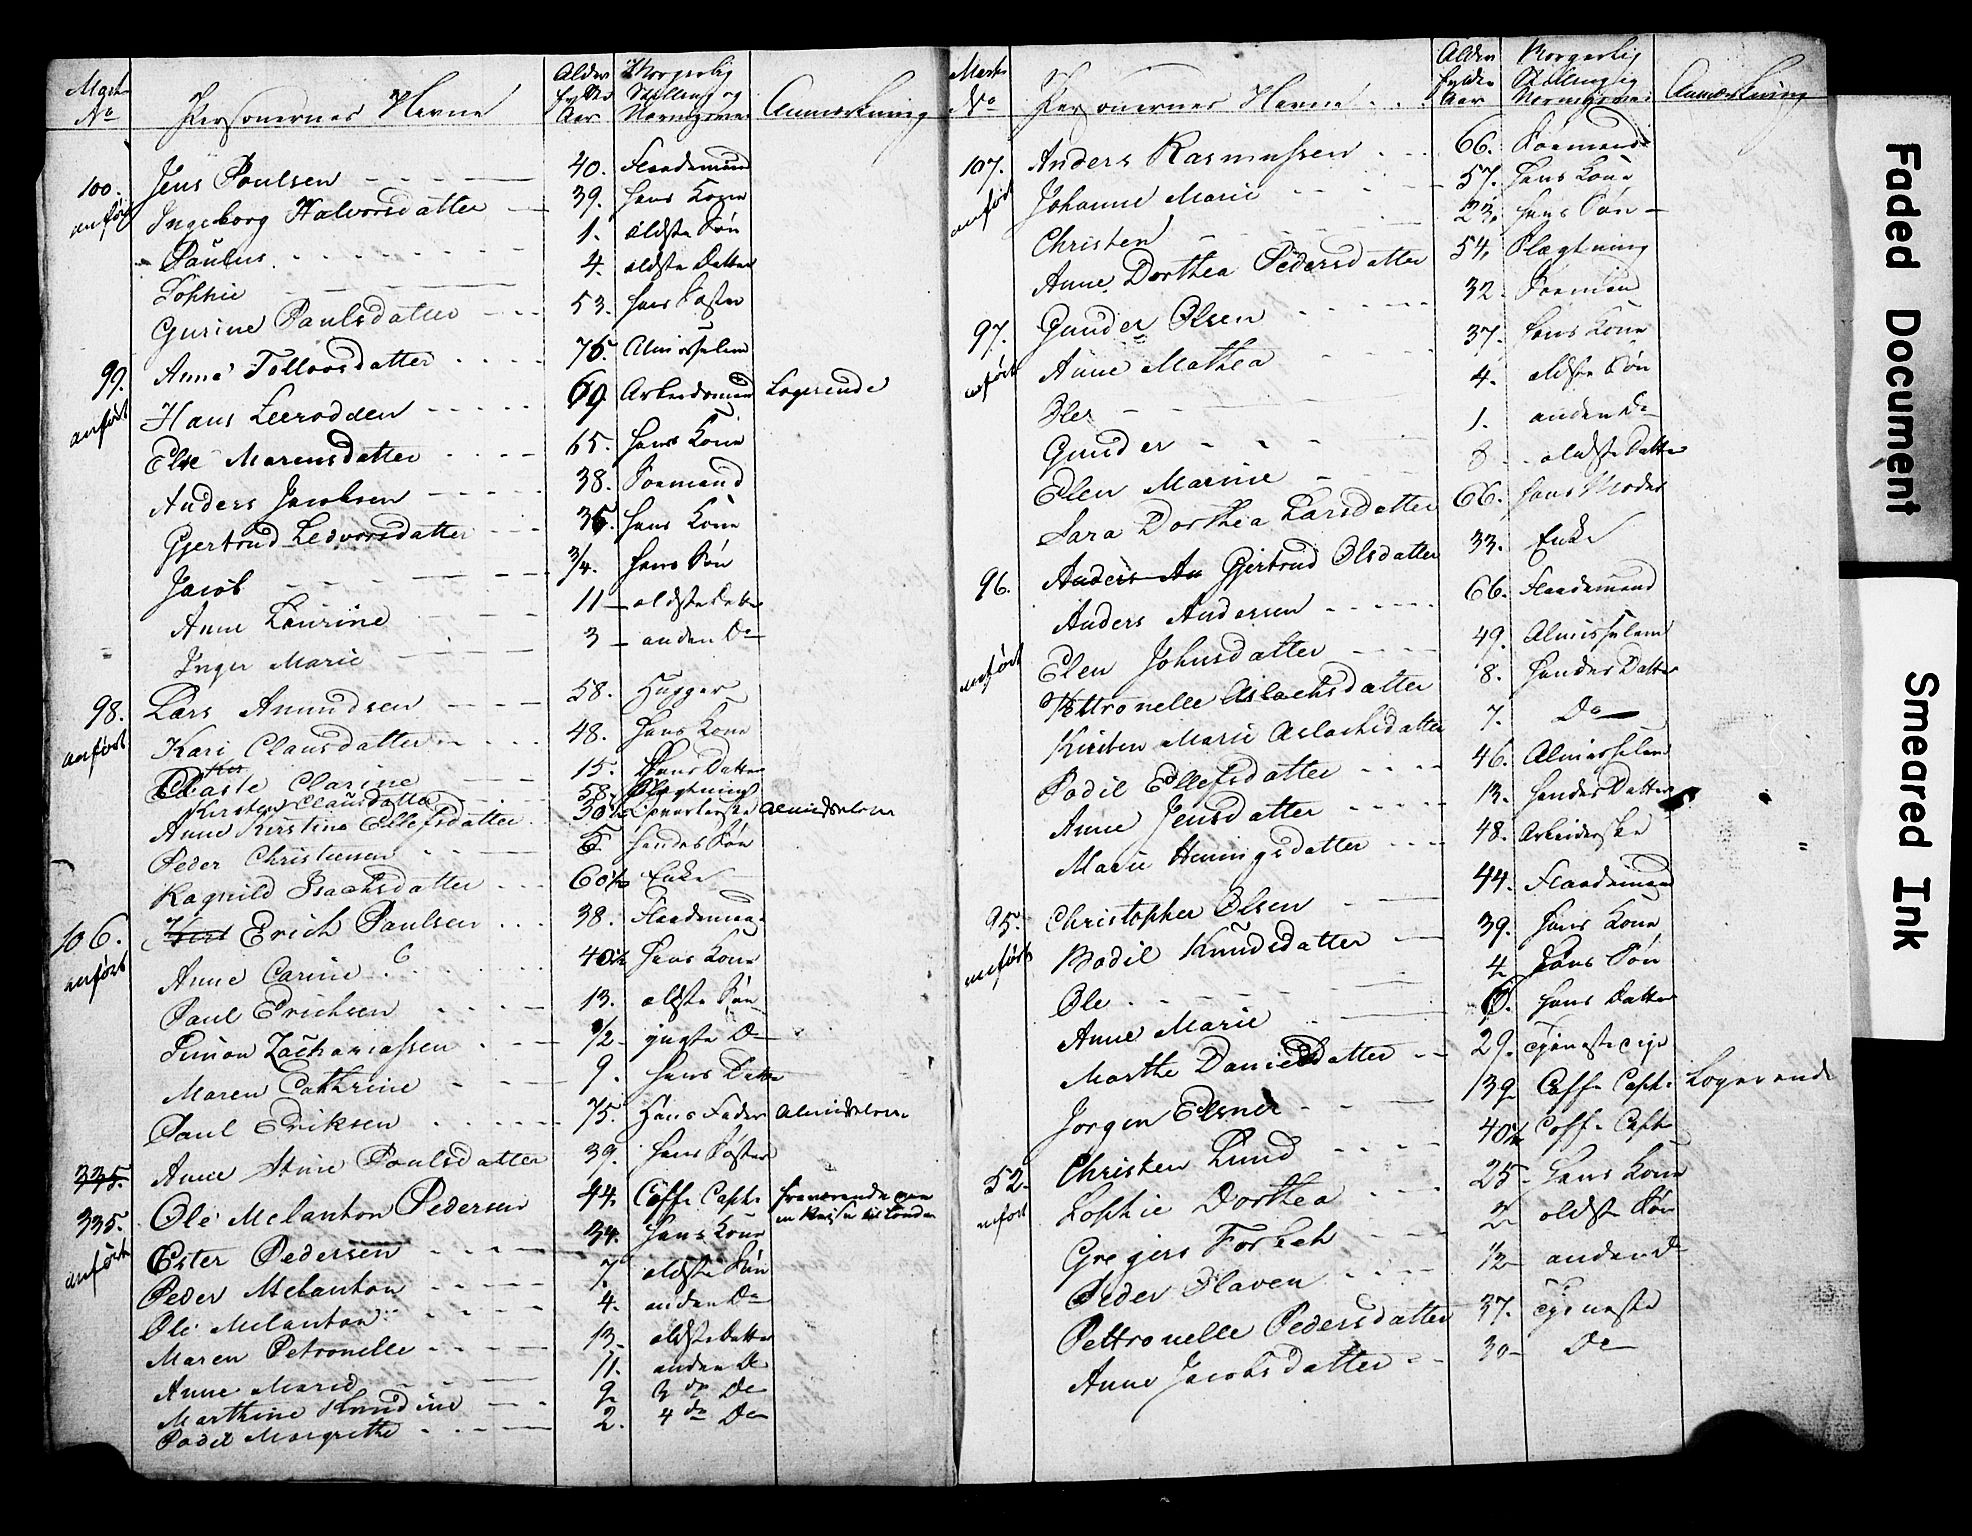 Matr No Personernes Navne Alder fyldte Aar Borgerlig Stilling og Næringsvei Anmærkning
100. Jens Poulsen 40. Flaademand
anført Ingeborg Halvorsdatter 39. hans Kone
Paulus 1. ældste Søn
Sophie 4. ældste Datter
Gurine Paulsdatter 53. hans Søster
99. Anne Tollevsdatter 75. Almisselem
anført Hans Leerodden 69. Arbeidsmand Logerende
Else Marensdatter 65. hans Kone
Anders Jacobsen 38. Søemand
Gjertrud Ledvorsdatter 35. hans Kone
Jacob 3/4. hans Søn
Anne Laurine 11 ældste Datter
Inger Marie 3 anden Do
98. Lars Amundsen 58. Hugger
anført Kari Clausdatter 48. Hans Kone
Clarine 15. Hans Datter
Kirsten Clausdatter 58. Slægtning
Anne Kirstine Ellefsdatter 30 1/2 Almisselem
Peder Christensen 5. hendes Søn
Ragnild Isachsdatter 60 1/2 Enke
106. Erich Paulsen 38. Flaademand
anført Anne Carine 40 1/2 hans Kone
Paul Erichsen 13. ældste Søn
Simon Zachariassen 1/2 yngste Do
Maren Cathrine 9. hans Datter
Paul Eriksen 75. Hans Fader Almisselem
335. Anne Stine Poulsdatter 39. hans Søster
335. Ole Melanton Pedersen 44. Coff. Capt. fraværende paa en Reise til London
anført Ester Pedersen 34. hans Kone
Peder Melanton 7. ældste Søn
Ole Melanton 4. anden Do
Maren Petronelle 13. ældste Datter
Anne Marie 11. anden Do
Marthine Knudine 9 3de Do
Bodil Margrethe 2. 4de Do
Matr No Personernes Navne Alder fyldte Aar Borgerlig Stilling og Næringsvei Anmærkning
107. Anders Rasmussen 66. Søemand
anført Johanne Marie 57. hans Kone
Christen 23. hans Søn
Anne Dorthea Pedersdatter 54. Slægtning
97. Gunder Olsen 32. Søemand
anført Anne Mathea 37. hans Kone
Ole 4. ældste Søn
Gunder 1. anden Do
Elen Marine 8 ældste Datter
Sara Dorthea Larsdatter 66. hans Moder
96. Anders An Gjertrud Olsdatter 33. Enke
Anders Andersen 66. Flaademand
anført Elen Johnsdatter 49. Almisselem
Pettronelle Aslachsdatter 8. hendes Datter
Kirsten Marie Aslachsdatter 7. Do
Bodil Ellefsdatter 46. Almisselem
Anne Jensdatter 13. hendes Datter
Marie Henningsdatter 48. Arbeiderske
95. Christopher Olsen 44. Flaademand
anført Bodil Knudsdatter 39. hans Kone
Ole 4 hans Søn
Anne Marie hans Datter
Marthe Danielsdatter 29. Tjenestepige
Jørgen Elsner 39 Coff. Capt. Logerende
52. Christen Lund 40 1/2 Coff. Capt.
anført Sophie Dorthea 25 hans Kone
Gregers 2 ældste Søn
Peder Slaven 1/2 anden Do
Pettronelle Pedersdatter 37. Tjeneste
Anne Jacobsdatter 30 Do
Faded Document
Smeared Ink